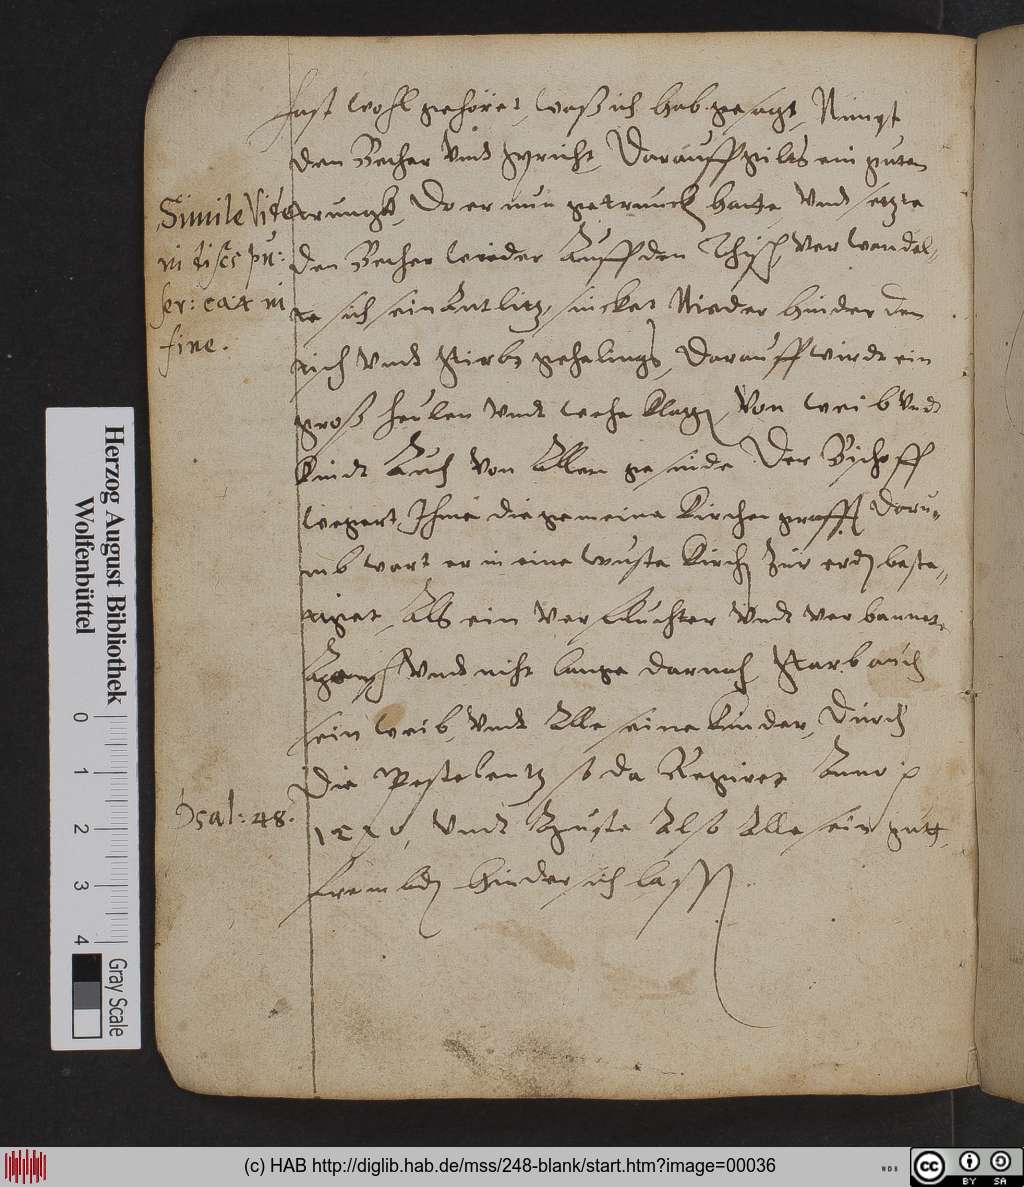 hast wohl gehöret, waß ich hab gesagt, Nimpt
den Becher Vnd spricht, Darauff gilts ein guten
trungk, Do er nun getrunck hatte Vnd setzte
den Becher wieder Auff den Thisch, Verwandel„
te sich sein Antlitz, sincket Nieder hinder den
tisch Vnd stirbt gehelings, Darauff wirdt ein
groß heulen Vndt wehe klagen, Von weib Vndt
kindt Auch Von Allen gesinde. Der Bischoff
wegert Ihme die gemeine Kirchen Daru„
mb wart er in eine wuste Kirche zur erden beste„
tiget, Als ein Verfluchter Vndt Verbannete
Mensch Vnd nicht lange darnach, Starb auch
sein weib, Vndt Alle seine Kinder, Durch
Die Pestelentz so da Regiret Anno
Vndt Muste Also Alle sein gutt,
frembden hinder sich lassen
Simile Vide
in
in
fine.
Psal: 48.
Herzog August Bibliothek
Wolfenbüttel
0 1 2 3 4
Gray Scale
(c) HAB http://diglib.hab.de/mss/248-blank/start.htm?image=00036
WDB
cc BY SA